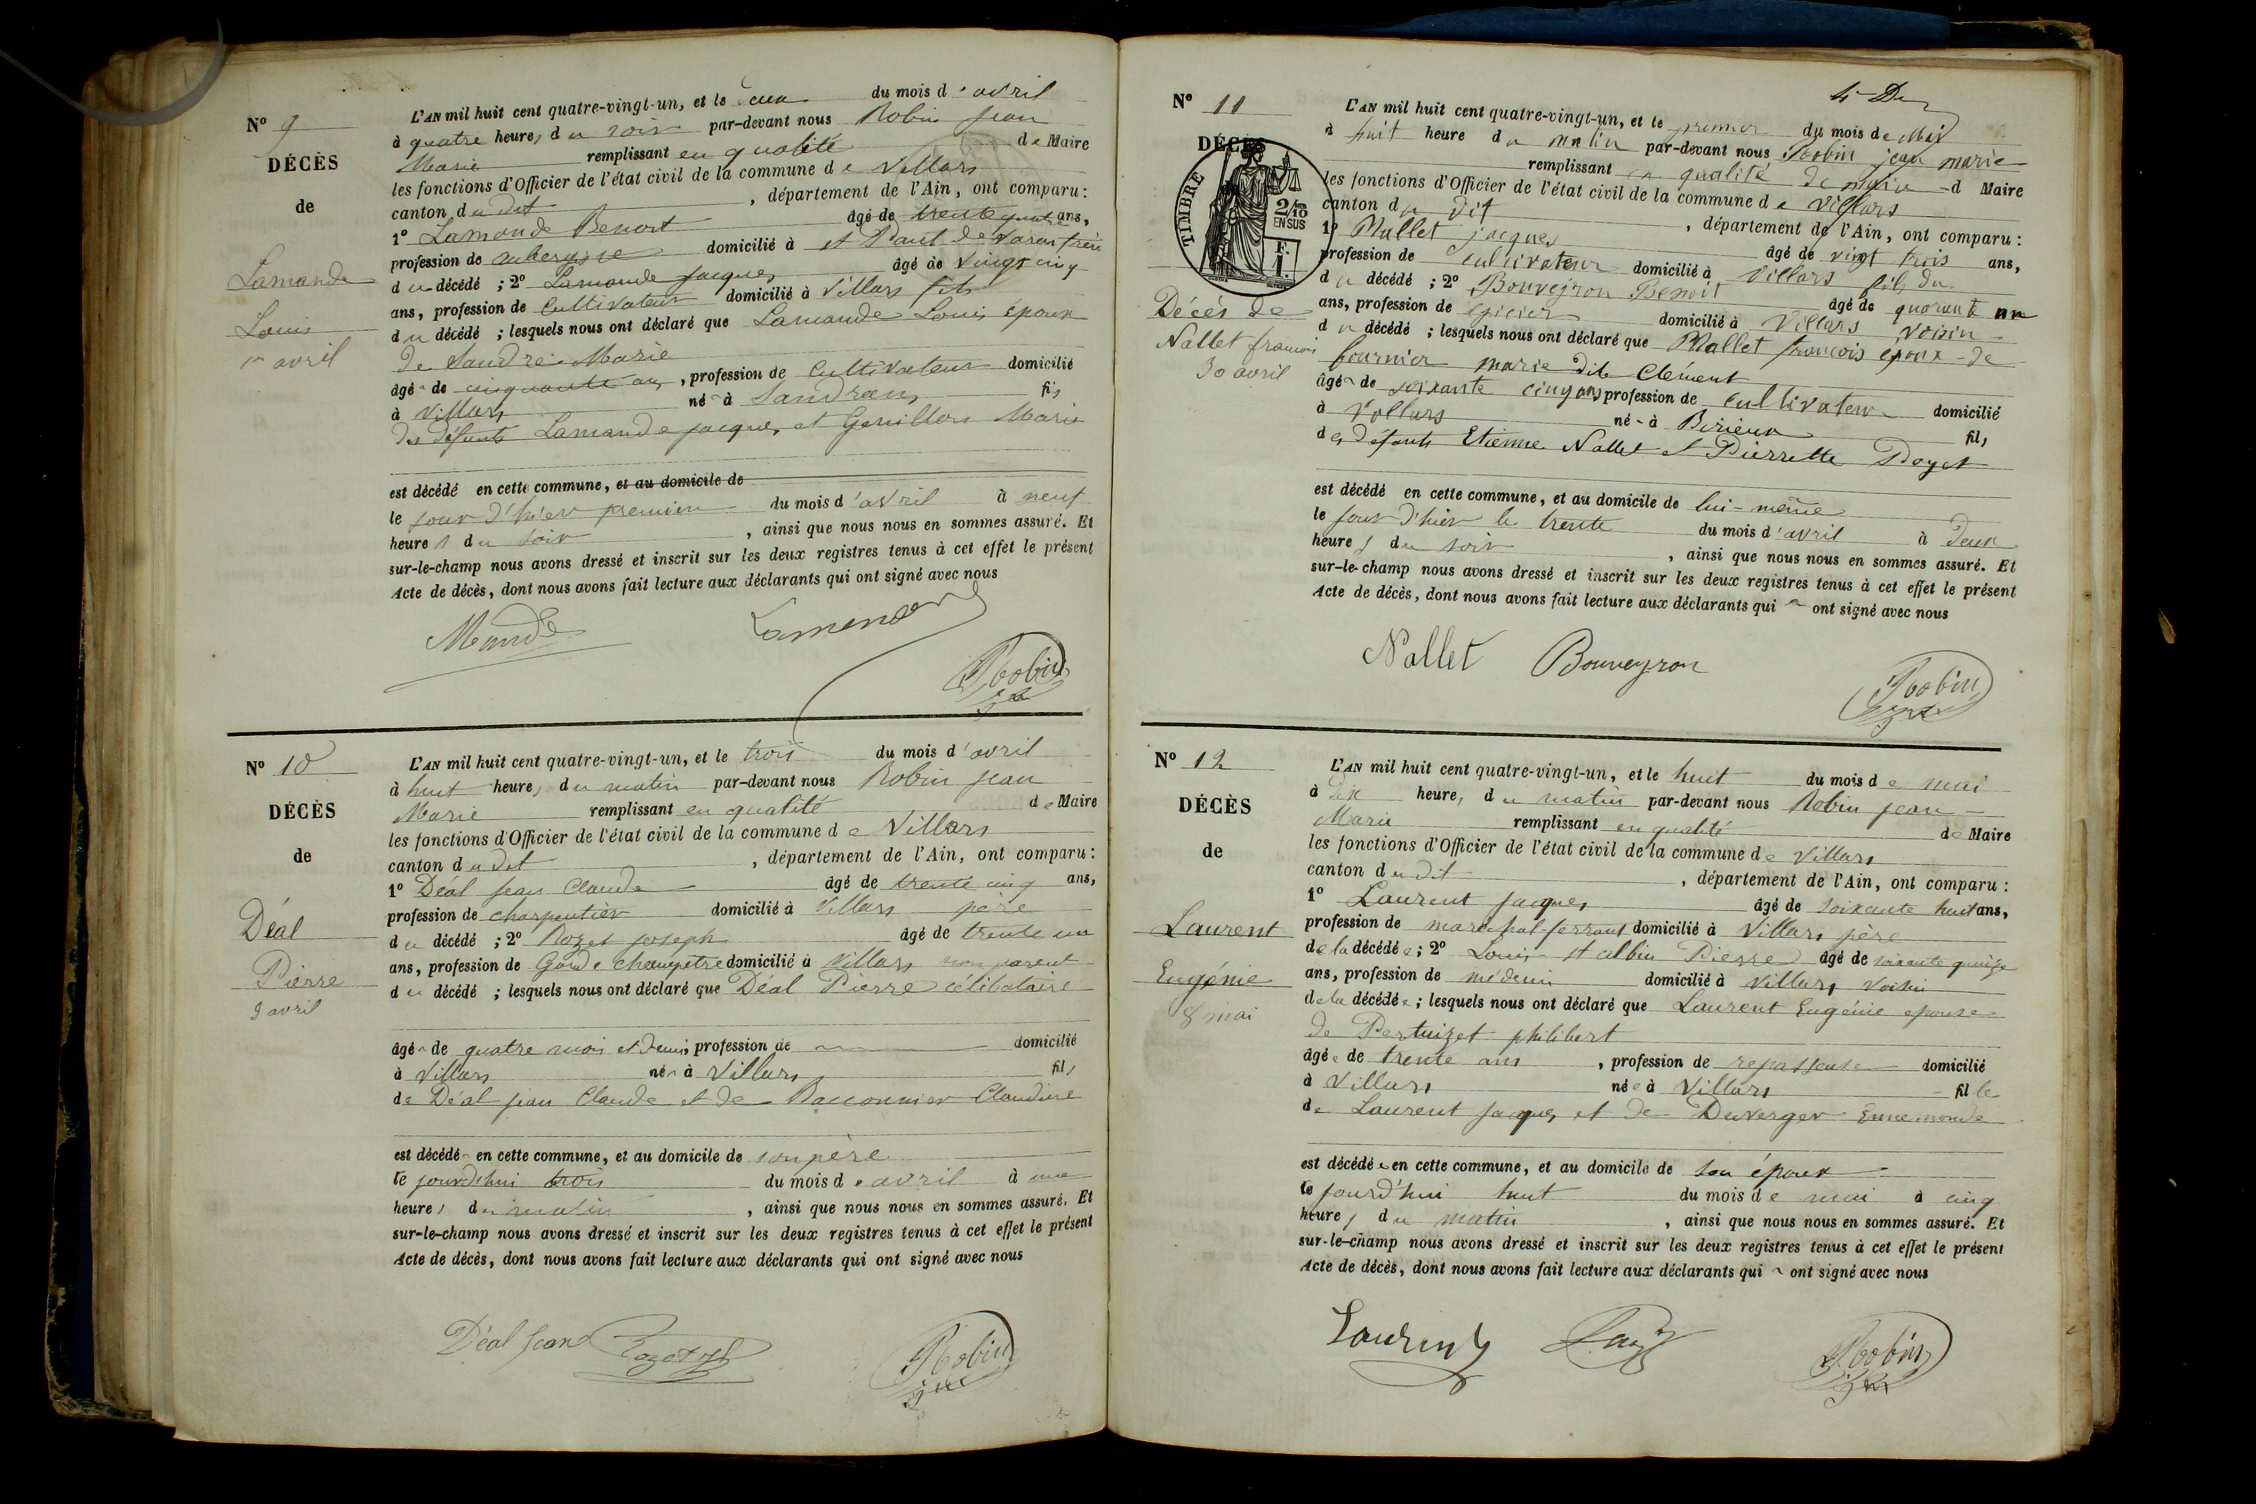 N° 9
DÉCÈS
de
Lamande
Louis
1er avril
L'AN mil huit cent quatre-vingt-un, et le deux du mois d'avril
à quatre heures du soir par-devant nous Robin Jean
Marie remplissant en qualité de Maire
les fonctions d'Officier de l'état civil de la commune de Villars
canton du dit, département de l'Ain, ont comparu :
1° Lamande Benoit âgé de trente quatre ans,
profession de domicilié à St Paul de Varax frère
du décédé ; 2° Lamande Jacques âgé de vingt cinq
ans, profession de Cultivateur domicilié à Villars fils
du décédé ; lesquels nous ont déclaré que Lamande Louis époux
de Marie
âgé de cinquante ans, profession de Cultivateur domicilié
à Villars né à Sandrans fils
des défunts Lamande Jacques et Marie
est décédé en cette commune, et au domicile de
le jour d'hier premier du mois d'avril à neuf
heures du soir, ainsi que nous nous en sommes assuré. Et
sur-le-champ nous avons dressé et inscrit sur les deux registres tenus à cet effet le présent
Acte de décès, dont nous avons fait lecture aux déclarants qui ont signé avec nous
Robin
N° 10
DÉCÈS
de
Déal
Pierre
3 avril
L'AN mil huit cent quatre-vingt-un, et le trois du mois d'avril
à huit heures du matin par-devant nous Robin Jean
Marie remplissant en qualité de Maire
les fonctions d'Officier de l'état civil de la commune de Villars
canton du dit, département de l'Ain, ont comparu :
1° Déal Jean Claude âgé de trente cinq ans,
profession de charpentier domicilié à Villars père
du décédé ; 2° Rozet Joseph âgé de trente un
ans, profession de Garde champetre domicilié à Villars non parent
du décédé ; lesquels nous ont déclaré que Déal Pierre célibataire
âgé de quatre mois et demi, profession de domicilié
à Villars né à Villars fils
de Déal Jean Claude et de Claudine
est décédé en cette commune, et au domicile de son père
le jourd'hui trois du mois de avril à une
heures du matin, ainsi que nous nous en sommes assuré. Et
sur-le-champ nous avons dressé et inscrit sur les deux registres tenus à cet effet le présent
Acte de décès, dont nous avons fait lecture aux déclarants qui ont signé avec nous
Déal Jean Robin
N° 11
DÉCÈS
TIMBRE
2/10
EN SUS
F.
1.
Décés de
Nallet francois
30 avril
L'AN mil huit cent quatre-vingt-un, et le premier du mois de Mai
à huit heure du matin par-devant nous Robin jean marie
remplissant en qualité de maire d Maire
les fonctions d'Officier de l'état civil de la commune de Villars
canton du dit, département de l'Ain, ont comparu :
1° Nallet jacques âgé de vingt trois ans,
profession de Cultivateur domicilié à Villars fils du
du décédé ; 2° Bouveyron Benoit âgé de quarante un
ans, profession de Epicier domicilié à Villars voisin
du décédé ; lesquels nous ont déclaré que Nallet francois époux de
fournier marie dite Clément
âgé de soixante cinq ans profession de Cultivateur domicilié
à Villars né à Birieux fils
des défunts Etienne Nallet et Pierrette
est décédé en cette commune, et au domicile de lui-même
le jour d'hier le trente du mois d'avril à deux
heures du soir, ainsi que nous nous en sommes assuré. Et
sur-le-champ nous avons dressé et inscrit sur les deux registres tenus à cet effet le présent
Acte de décès, dont nous avons fait lecture aux déclarants qui ont signé avec nous
Nallet Bouveyron
Robin
N° 12
DÉCÈS
de
Laurent
Eugénie
8 mai
L'AN mil huit cent quatre-vingt-un, et le huit du mois de mai
à dix heures, du matin par-devant nous Robin jean
Marie remplissant en qualité de Maire
les fonctions d'Officier de l'état civil de la commune de Villars
canton du dit, département de l'Ain, ont comparu :
1° Laurent Jacques âgé de soixante huit ans,
profession de marechal-ferrant domicilié à Villars père
de la décédée ; 2° Louis St albin Pierre âgé de soixante quinze
ans, profession de médecin domicilié à Villars voisin
de la décédée ; lesquels nous ont déclaré que Laurent Eugénie epouse
de Pertuizet philibert
âgée de trente ans, profession de repasseuse domicilié
à Villars née à Villars fille
de Laurent Jacques et de Duverger Ennemonde
est décédée en cette commune, et au domicile de son époux
le jourd'hui huit du mois de mai à cinq
heures du matin, ainsi que nous nous en sommes assuré. Et
sur-le-champ nous avons dressé et inscrit sur les deux registres tenus à cet effet le présent
Acte de décès, dont nous avons fait lecture aux déclarants qui ont signé avec nous
Laurent
Robin